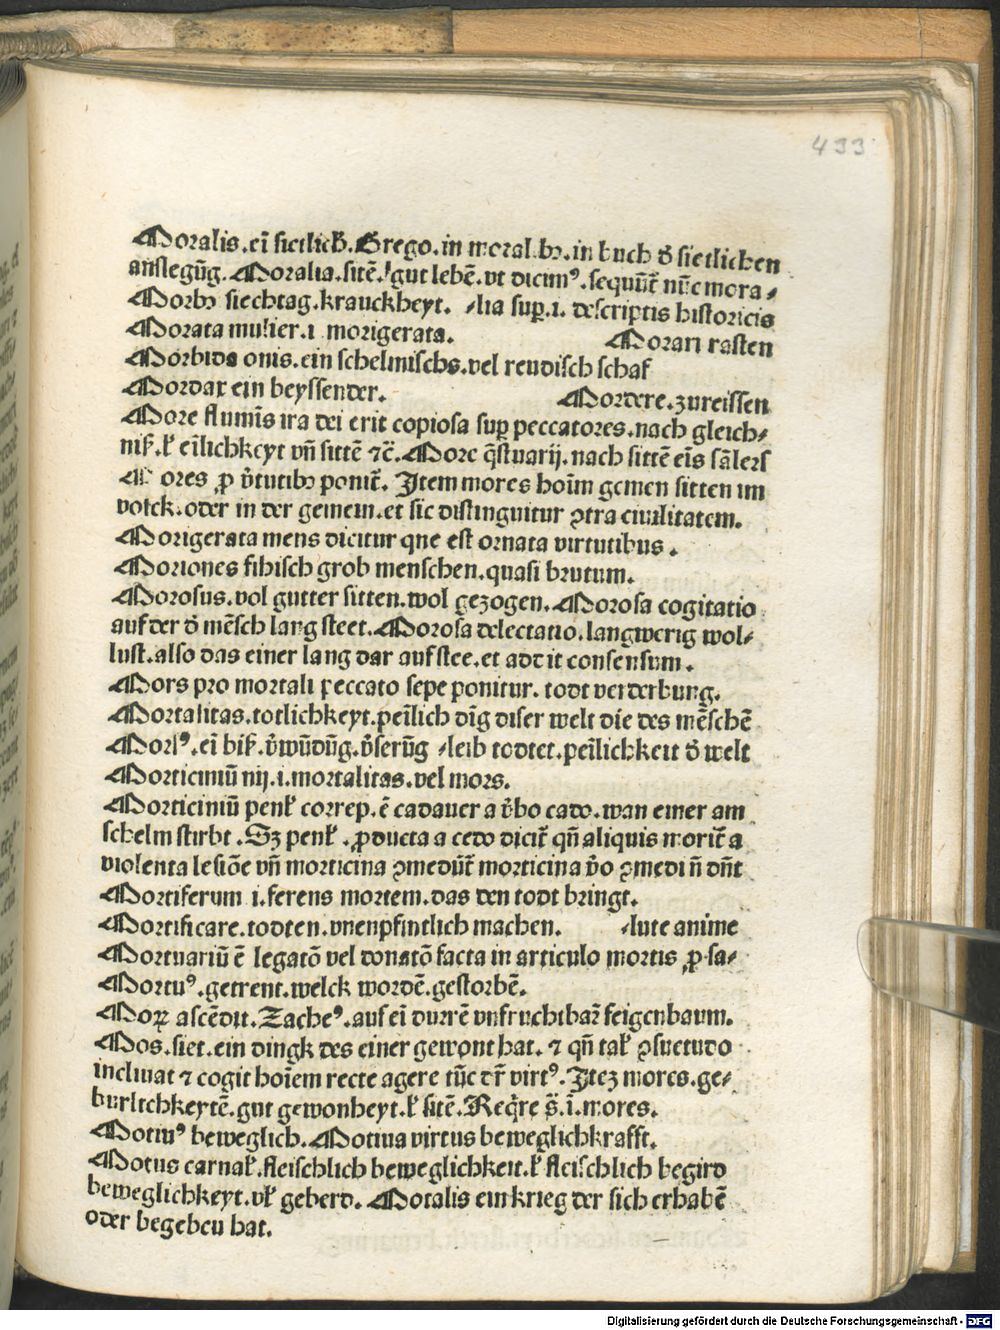 433
Moralis.eī sietlicħ.Grego.in moral.bꝫ.in buch ð sietlichen
aũslegūg.Moralia.sitē.ł gut lebē.vt dicimꝰ.sequūt̃ nūc mora⸗
Morbꝫ siechtag.kranckheyt. ⸗lia suꝑ.i.descriptis historicis
Morata mulier.i morigerata. Morari rasten
Morbida onis.ein schelmischs.vel reudisch schaf
Mordax ein beyssender. Mordere.zureissen
More flumīs ira dei erit copiosa suꝑ peccatores.nach gleich⸗
niß.ł eīlichkeyt vñ sittē ⁊c̃.More q̃stuarij.nach sittē eīs sãlers
Mores ꝓ ṽtutibꝫ ponit̃. Item mores hoīm gemen sitten im
volck.oder in der gemein.et sic distinguitur ꝯtra ciuilitatem.
Morigerata mens dicitur que est ornata virtutibus.
Moriones fihisch grob menschen.quasi brutum.
Morosus.vol gutter sitten.wol gezogen.Morosa cogitatio
auf der ð mēsch lang steet.Morosa delectatio.langwerig wol⸗
lust.also das einer lang dar auf stee.et addit consensum.
Mors pro mortali peccato sepe ponitur.todt verderbung.
Mortalitas.totlichkeyt.peīlich dīg diser welt die des mēschē
Morsꝰ.eī biß.ṽwūdūg.ṽserūg ⸗leib todtet.peīlichkeit ð welt
Morticiniū nij.i.mortalitas.vel mors.
Morticiniū penł correp.ē cadauer a ṽbo cado.wan einer am
schelm stirbt.Sꝫ penł.ꝓducta a cedo dicit̃ qñ aliquis morit̃ a
violenta lesiōe vñ morticina ꝯmedūt̃ morticina ṽo ꝯmedi ñ dñt
Mortiferum i.ferens mortem.das den todt bringt.
Mortificare.todten.vnenpfintlich machen. ⸗lute anime
Mortuariū ē legatō vel donatō facta in articulo mortis ꝓ sa⸗
Mortuꝰ.getrent.welck wordē.gestorbē.
Moꝝ ascēdit.Zacheꝰ.auf eī durrē vnfruchtbar̃ feigenbaum.
Mos.siet.ein dingk des einer gewont hat.⁊ qñ tał ꝯsuetudo
inclinat ⁊ cogit hoīem recte agere tūc dr̃ virtꝰ.Iteꝫ mores.ge⸗
burlichkeytē.gut gewonheyt.ł sitē.Req̃re s̃.ī.mores.
Motiuꝰ beweglich.Motiua virtus beweglichkrafft.
Motus carnał.fleischlich beweglichkeit.ł fleischlich begird
beweglichkeyt.vł geberd. Motalis ein krieg der sich erhabē
oder begeben hat.
Digitalisierung gefördert durch die Deutsche Forschungsgemeinschaft - DFG